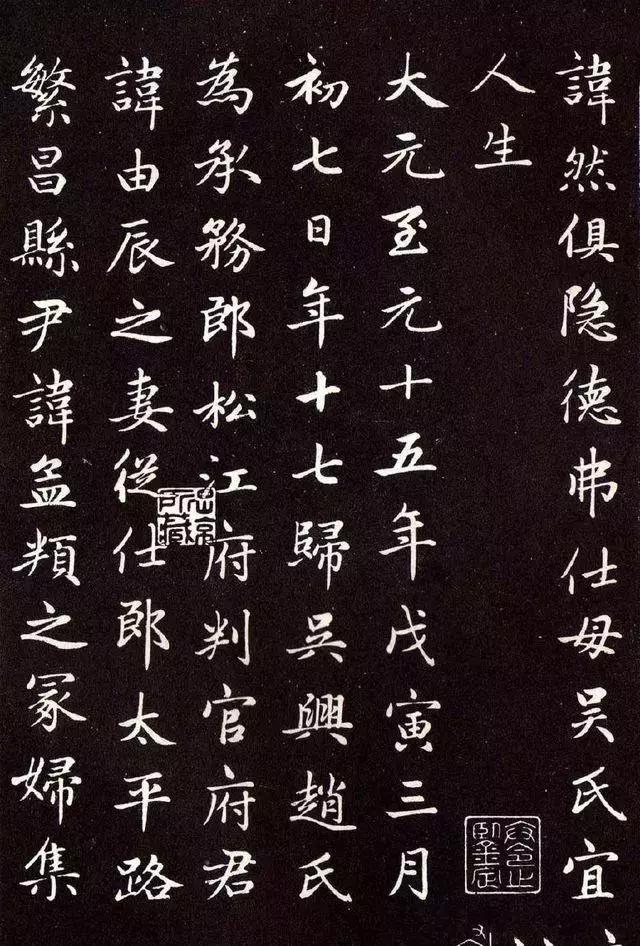 諱然俱隐德弗仕毋吴氏宜
人生
大元至元十五年戊寅三月
初七日年十七歸吴興趙氏
為承務郎松江府判官府君
諱由辰之妻從仕郎太平路
繁昌縣尹諱孟頖之冢婦集